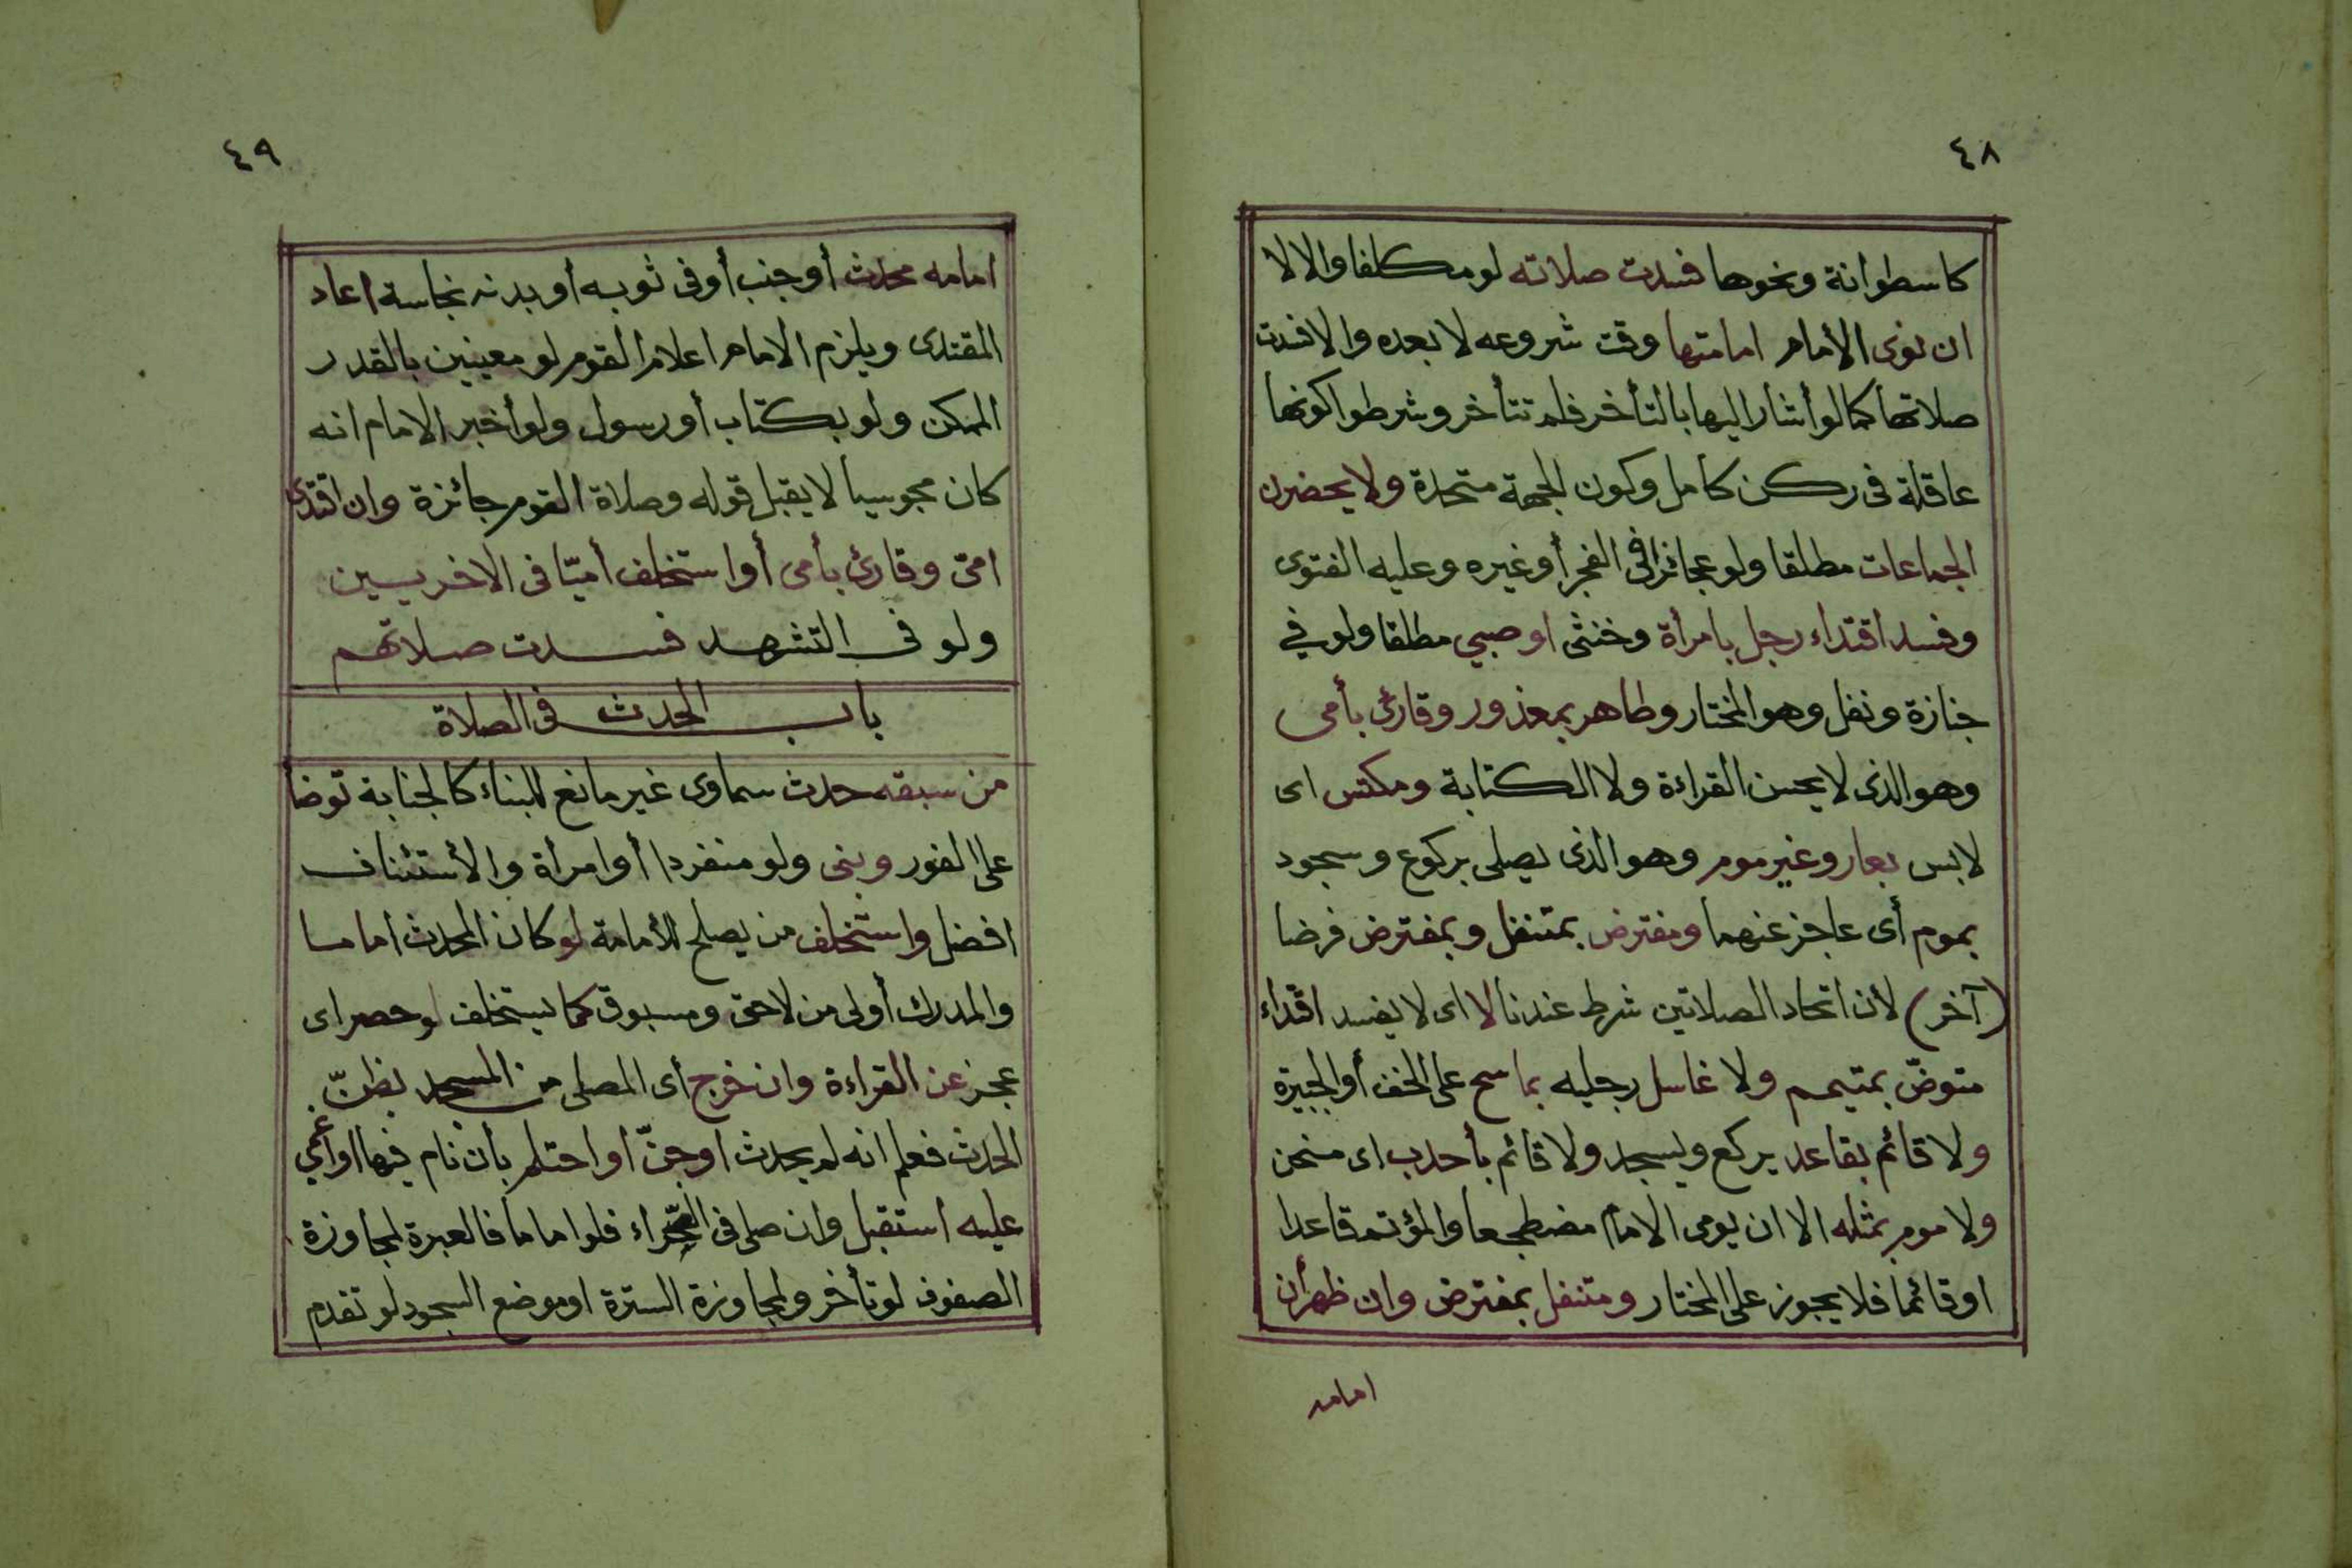 ٤٨
كاسطوانة ونحوها فسدت صلاته لو مكلفا والا لا
ان نوى الأمام امامتها وقت شروعه لا بعده والا فسدت
صلاتها كما لو أشار اليها بالتأخر فلم تتأخر وشرطوا كونها
عاقلة في ركن كامل وكون الجهة متحدة ولا يحضرن
الجماعات مطلقا ولو عجائزا في الفجر أو غيره وعليه الفتوى
وفسد اقتداء رجل بامرأة وخنثى او صبي مطلقا ولو في
جنازة ونفل وهو المختار وطاهر بمعذور وقارئ بأمى
وهو الذى لا يحسن القراءة ولا الكتابة ومكتس اى
لابس بعار وغير موم وهو الذى يصلى بركوع وسجود
بموم أى عاجز عنهما ومفترض بمتنفل وبمفترض فرضا
(آخر) لأن اتحاد الصلاتين شرط عندنا لا اى لا يفسد اقتداء
متوضّ بمتيمم ولا غاسل رجليه بماسح على الخف أو الجبيرة
ولا قائم بقاعد يركع ويسجد ولا قائم بأحدب اى منحن
ولا موم بمثله الا ان يومى الامام مضطجعا والمؤتم قاعدا
او قائما فلا يجوز على المختار ومتنفل بمفترض وان ظهر أن
امامه
٤٩
امامه محدث أو جنب أو فى ثوبه أو بدنه نجاسة اعاد
المقتدى ويلزم الامام اعلام القوم لو معينين بالقدر
الممكن ولو بكتاب أو رسول ولو أخبر الامام انه
كان مجوسيا لا يقبل قوله وصلاة القوم جائزة وان اقتدى
امىّ وقارئ بأمى أو استخلف أميّا فى الاخريين
ولو فى التشهد فسدت صلاتهم
باب الحدث فى الصلاة
من سبقه حدث سماوى غير مانع للبناء كالجنابة توضأ
على الفور وبنى ولو منفردا أو امرأة والأستئناف
افضل واستخلف من يصلح للأمامة لو كان المحدث اماما
والمدرك أولى من لاحق ومسبوق كما يستخلف لو حصر اى
عجز عن القراءة وان خرج أى المصلى من المسجد بظنّ
الحدث فعلم انه لم يحدث او جنّ أو احتلم بأن نام فيها او أغمي
عليه استقبل وان صلى فى الصحراء فلو اماما فالعبرة لمجاوزة
الصفوف لو تأخر ولمجاوزة السترة او موضع السجود لو تقدم